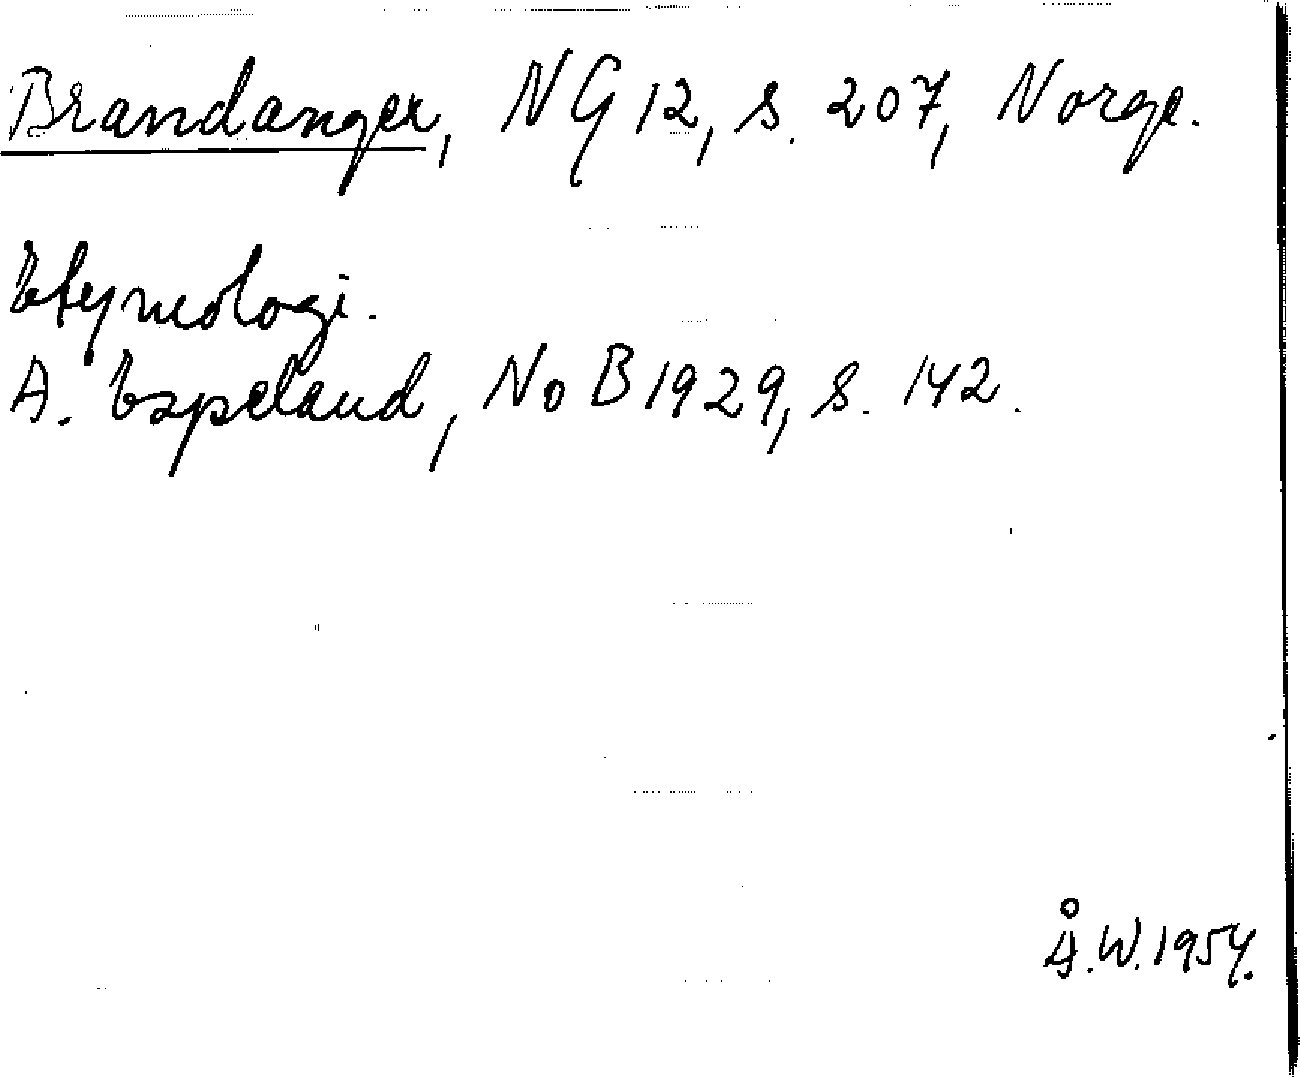 Brandanger, NG 12, s. 207, Norge.
Etymologi.
A. Espeland, NoB 1929, s. 142.
Å.W. 1954.